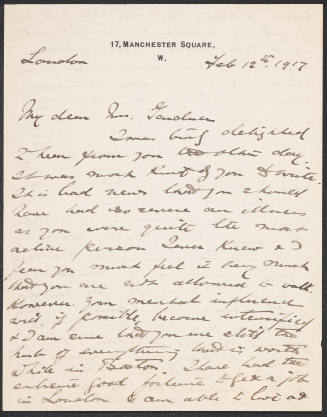 17, MANCHESTER SQUARE,
W.
London Feb 12th. 1917
My dear Mrs. Gardner
I was very delighted
to hear from you the other day.
It was most kind of you to write.
It is bad news that you should
have had so severe an illness
as you were quite the most
active person I ever knew & I
fear you must feel it very much
that you are not allowed to walk.
However your mental influence
will, if possible, become intensified
& I am sure that you are still the
hub of everything that is worth
while in Boston. I have had the
extreme good fortune to get a job
in London & am able to live at